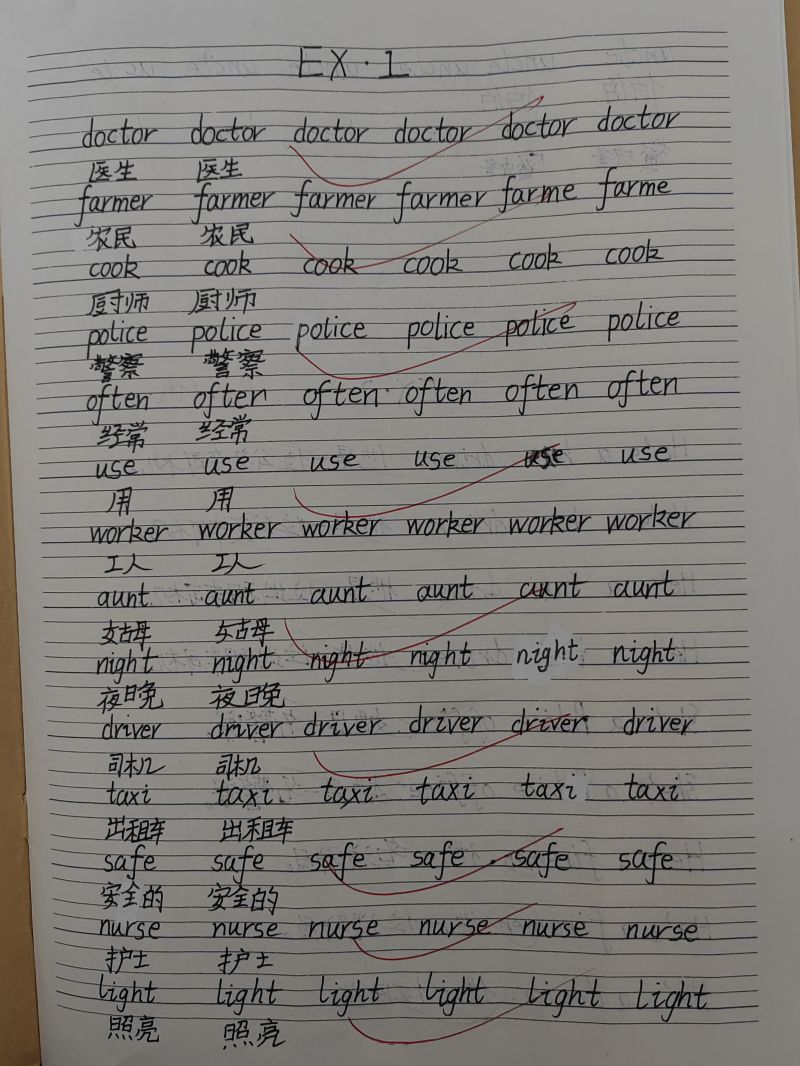 EX.1
doctor doctor doctor doctor doctor doctor
医生 医生
farmer farmer farmer farmer farme farme
农民 农民
cook cook cook cook cook cook
厨师 厨师
police police police police police police
警察 警察
often often often often often often
经常 经常
use use use use use use
用 用
worker worker worker worker worker worker
工人 工人
aunt aunt aunt aunt aunt aunt
姑母 姑母
night night night night night night
夜晚 夜晚
driver driver driver driver driver driver
司机 司机
taxi taxi taxi taxi taxi taxi
出租车 出租车
safe safe safe safe safe safe
安全的 安全的
nurse nurse nurse nurse nurse nurse
护士 护士
light light light light light light
照亮 照亮